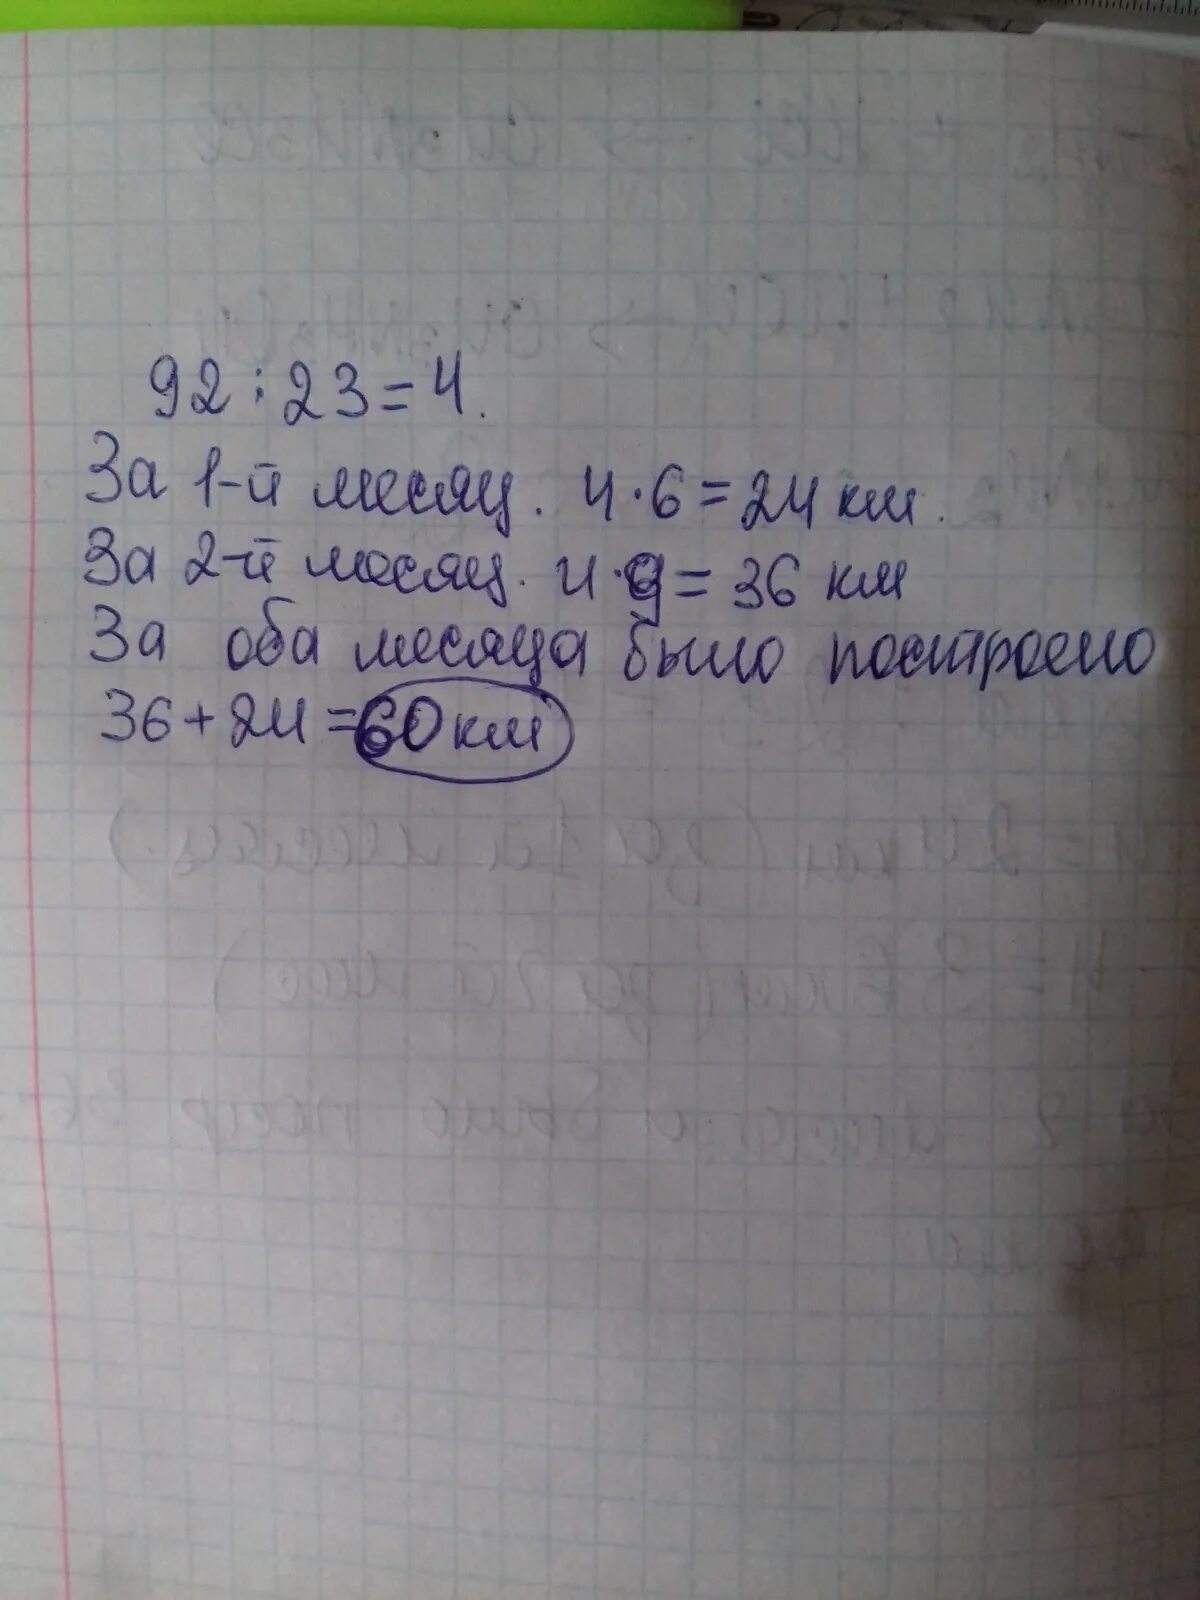 92 : 23 = 4.
За 1-й месяц. 4 · 6 = 24 км.
За 2-й месяц. 4 · 9 = 36 км
За оба месяца было построено
36 + 24 = 60 км